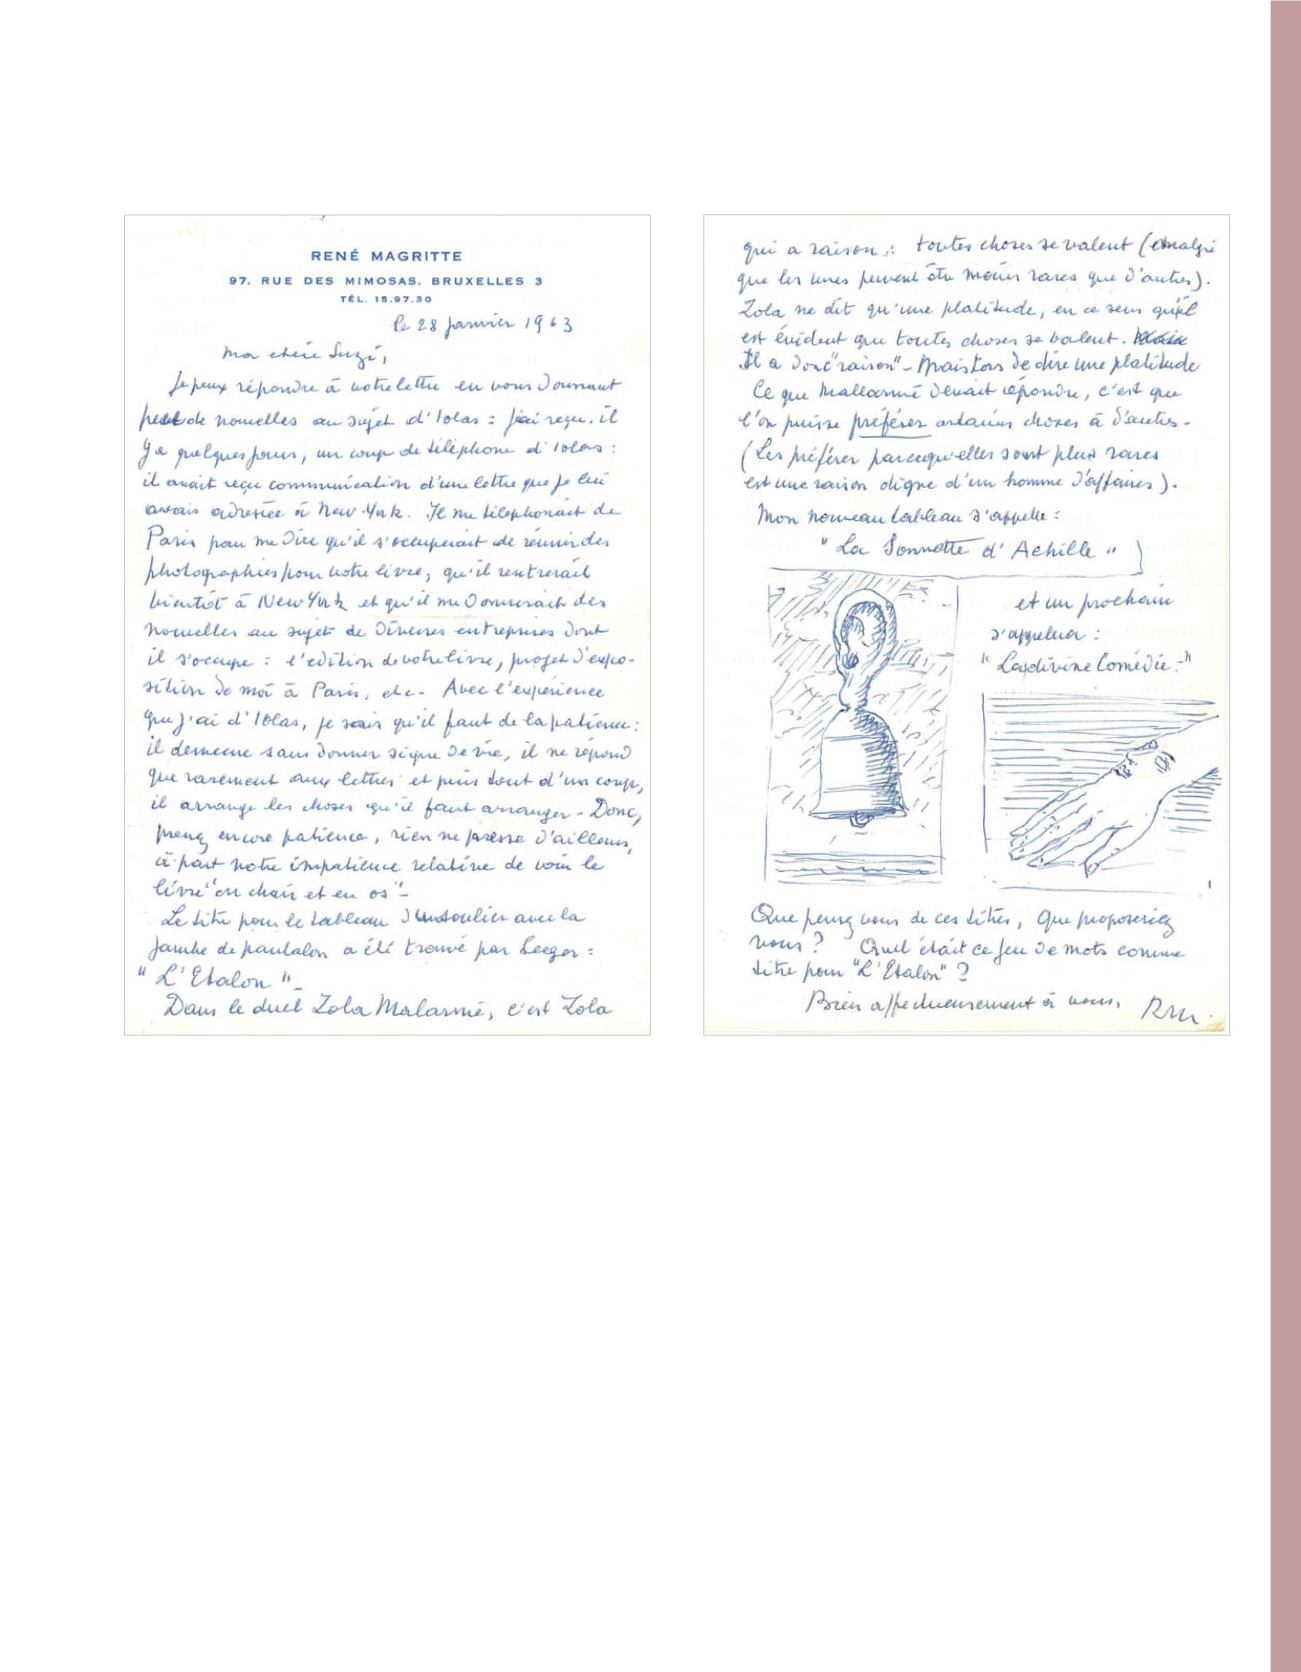 RENÉ MAGRITTE
97, RUE DES MIMOSAS, BRUXELLES 3
TÉL. 15.97.30
le 28 janvier 1963
Ma chère Suzi,
Je peux répondre à votre lettre en vous donnant
de nouvelles au sujet d'Iolas : j'ai reçu, il
y a quelques jours, un coup de téléphone d'Iolas :
il avait reçu communication d'une lettre que je lui
avais adressée à New-York. Il me téléphonait de
Paris pour me dire qu'il s'occuperait de réunir des
photographies pour votre livre, qu'il rentrerait
bientôt à New York et qu'il me donnerait des
nouvelles au sujet de diverses entreprises dont
il s'occupe : l'edition de votre livre, projet d'expo-
sition de moi à Paris, etc - Avec l'expérience
que j'ai d'Iolas, je sais qu'il faut de la patience :
il demeure sans donner signe de vie, il ne répond
que rarement aux lettres et puis tout d'un coup,
il arrange les choses qu'il faut arranger - Donc,
prenez encore patience, rien ne presse d'ailleurs,
à part notre impatience relative de voir le
livre "en chair et en os" -
Le titre pour le tableau soulier avec la
jambe de pantalon a été trouvé par Seeger :
"L'Etalon" -
Dans le duel Zola Malarmé, c'est Zola
qui a raison : toutes choses se valent (malgré
que les unes peuvent être moins rares que d'autres).
Zola ne dit qu'une platitude, en ce sens qu'il
est évident que toutes choses se valent.
Il a donc "raison" - Mais de dire une platitude
Ce que Mallarmé devait répondre, c'est que
l'on puisse préférer certaines choses à d'autres -
(Les préférer parcequ'elles sont plus rares
est une raison digne d'un homme d'affaires).
Mon nouveau tableau s'appelle :
"La Sonnette d'Achille"
et un prochain
s'appellera :
"La divine Comédie."
Que pensez vous de ces titres, que proposeriez
vous ? Quel était ce jeu de mots comme
titre pour "L'Etalon" ?
Bien affectueusement à vous,
RM.